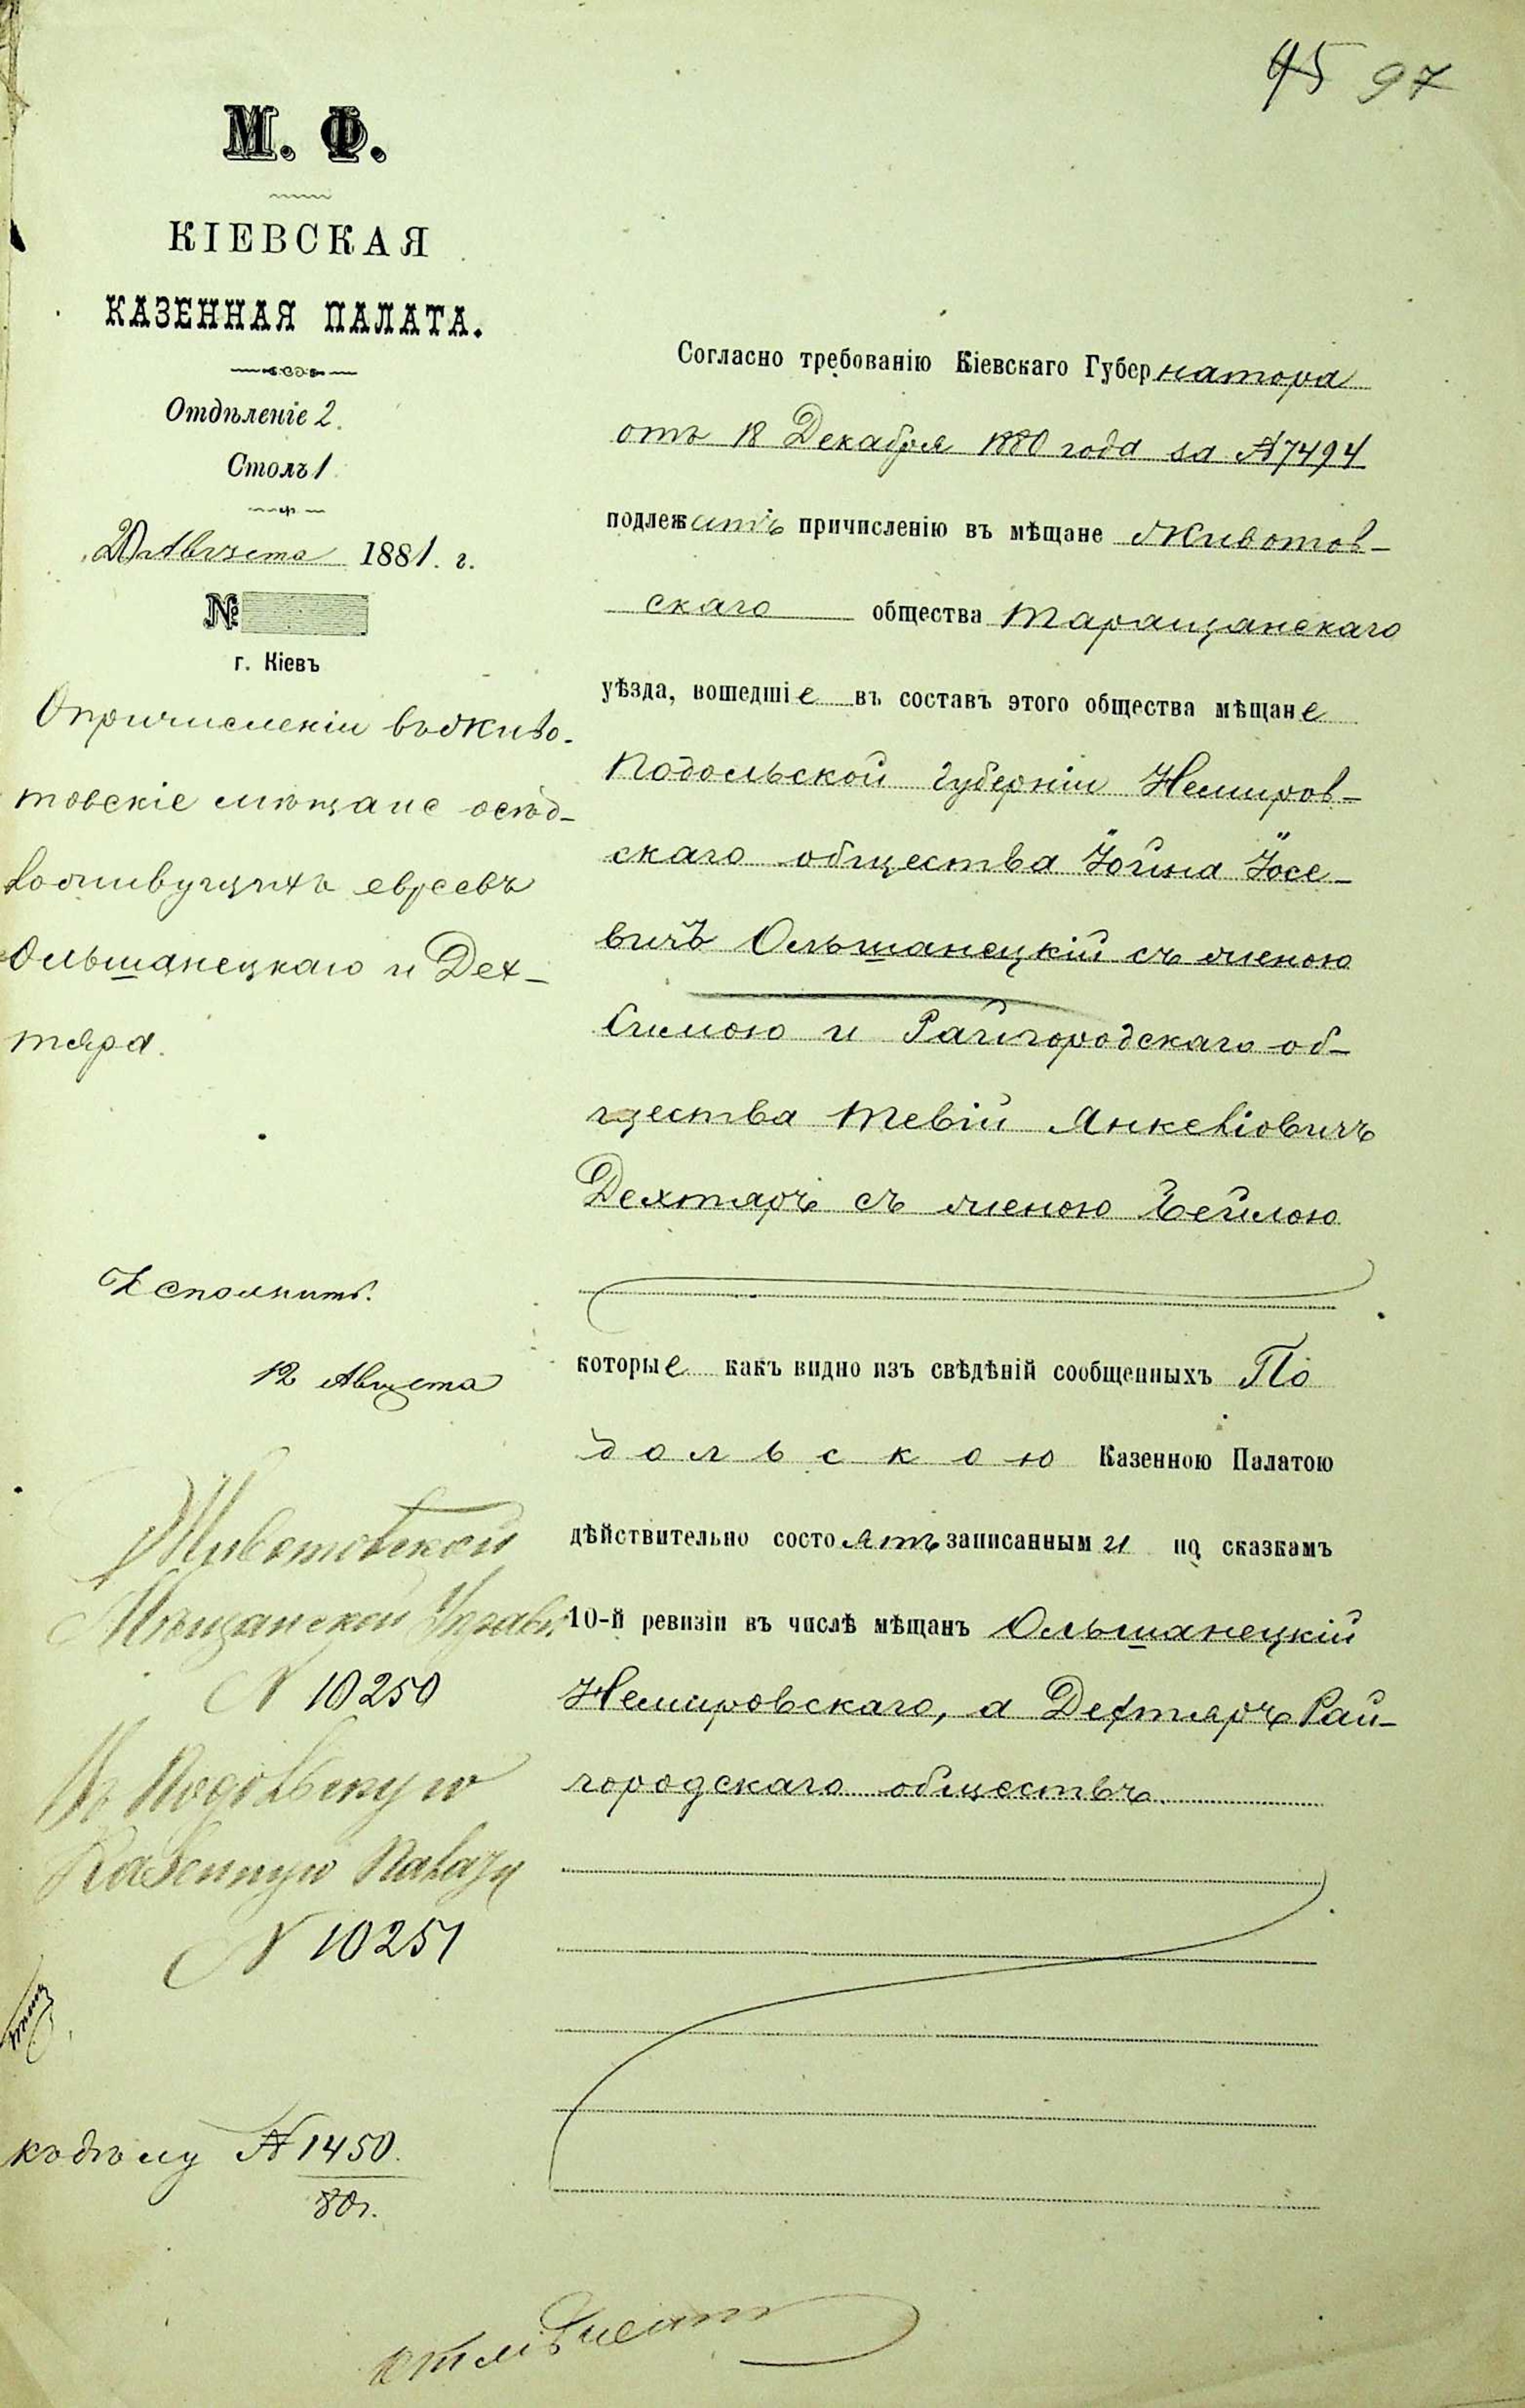 95 97
М. Ф.
КІЕВСКАЯ
КАЗЕННАЯ ПАЛАТА.
Отдѣленіе 2.
Столъ 1
20 Августа 1881. г.
№
г. Кіевъ
О причисленіи въ Живо-
товскіе мѣщане осѣд-
ложивущихъ евреевъ
Ольшанецкаго и Дех-
тяра.
Исполнить.
12 Августа
Животовской
Мѣщанской Управѣ
N 10250
Въ Подольскую
Казенную Палату
N 10251
къ дѣлу № 1450.
80 г.
Согласно требованію Кіевскаго Губернатора
отъ 18 Декабря 1880 года за № 7494
подлежатъ причисленію въ мѣщане Животов-
скаго общества Таращанскаго
уѣзда, вошедшіе въ составъ этого общества мѣщане
Подольской губерніи Немиров-
скаго общества Іойна Іосе-
вичъ Ольшанецкій съ женою
Симою и Райгородскаго об-
щества Тевій Янкеліовичъ
Дехтяръ съ женою Бейлою
которые какъ видно изъ свѣдѣній сообщенныхъ По
дольскою Казенною Палатою
дѣйствительно состоятъ записанными по сказкамъ
10-й ревизіи въ числѣ мѣщанъ Ольшанецкій
Немировскаго, а Дехтяръ Рай-
городскаго обществъ.